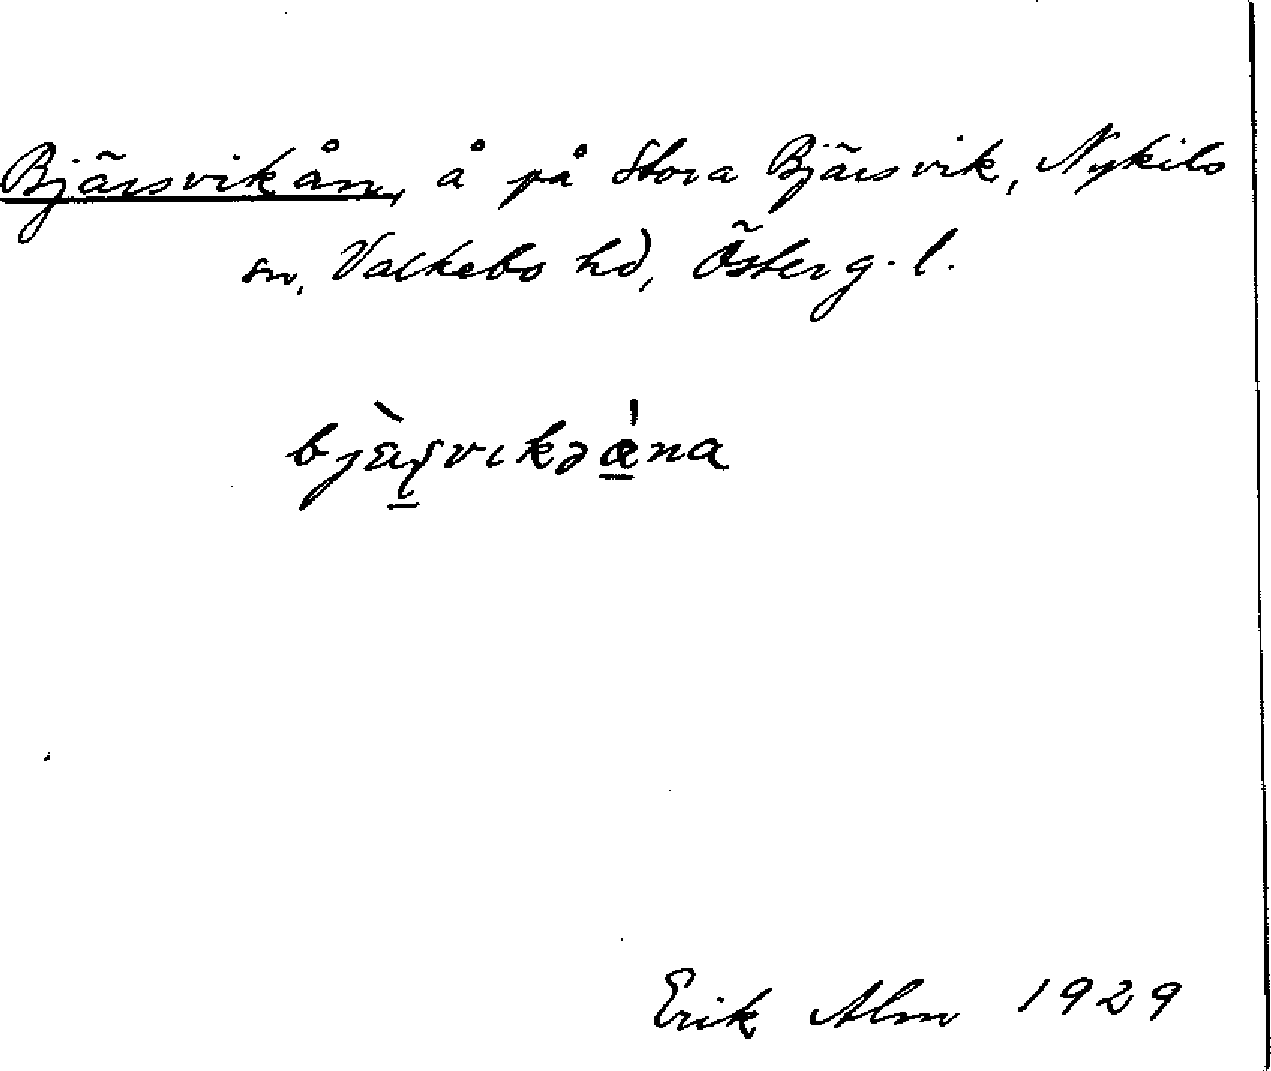 Bjärsvikån, å på Stora Bjärsvik, Nykils
sn, Valkebo hd, Österg. l.
Erik Alm 1929